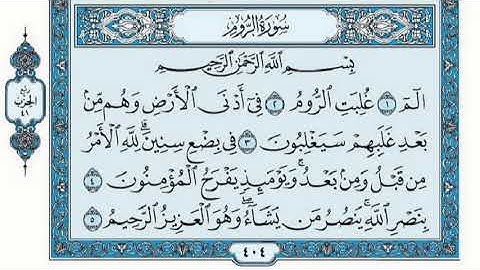 سُورَةُ الرُّومِ
بِسْمِ اللَّهِ الرَّحْمَٰنِ الرَّحِيمِ
الٓمٓ ١ غُلِبَتِ الرُّومُ ٢ فِىٓ أَدْنَى الْأَرْضِ وَهُم مِّنۢ
بَعْدِ غَلَبِهِمْ سَيَغْلِبُونَ ٣ فِى بِضْعِ سِنِينَ ۗ لِلَّهِ الْأَمْرُ
مِن قَبْلُ وَمِنۢ بَعْدُ ۚ وَيَوْمَئِذٍ يَفْرَحُ الْمُؤْمِنُونَ ٤
بِنَصْرِ اللَّهِ ۚ يَنصُرُ مَن يَشَآءُ ۖ وَهُوَ الْعَزِيزُ الرَّحِيمُ ٥
٤٠٤
الحزب
٤١